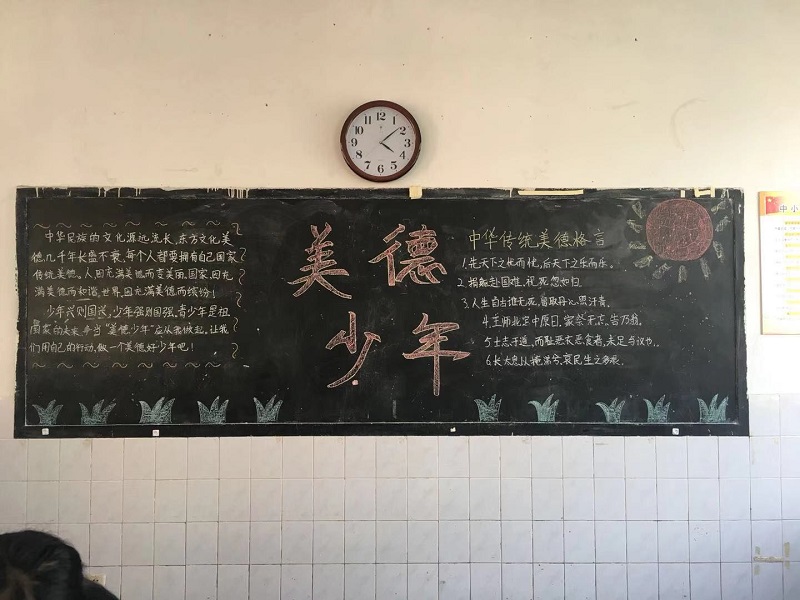 12
1
2
3
4
5
6
7
8
9
10
11
中华民族的文化源远流长，东方文化美
德，几千年长盛不衰，每个人都要拥有自己国家
传统美德。人，因充满美德而变美丽，国家，因充
满美德而和谐，世界，因充满美德而缤纷！
少年兴则国兴，少年强则国强，青少年是祖
国家的未来，争当“美德少年”应从我做起，让我
们用自己的行动，做一个美德好少年吧！
美德
少年
中华传统美德格言
1.先天下之忧而忧，后天下之乐而乐。
2.捐躯赴国难，视死忽如归。
3.人生自古谁无死，留取丹心照汗青。
4.王师北定中原日，家祭无忘告乃翁。
5.士志于道，而耻恶衣恶食者，未足与议也。
6.长太息以掩涕兮，哀民生之多艰。
中小